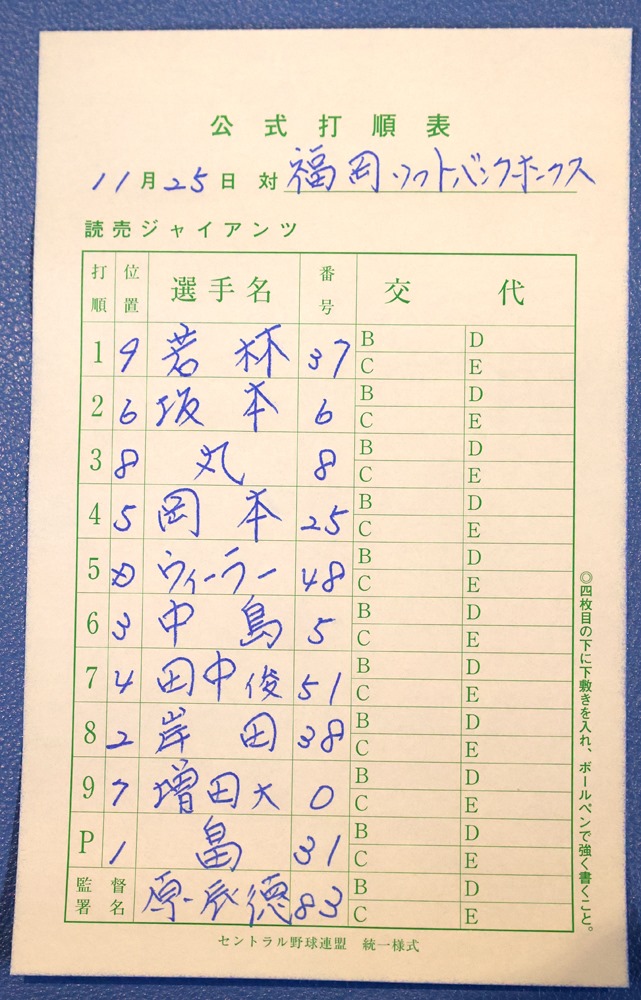 公式打順表
11月25日 対 福岡ソフトバンクホークス
読売ジャイアンツ
打順 位置 選手名 番号 交代
1 9 若林 37 B D
C E
2 6 坂本 6 B D
C E
3 8 丸 8 B D
C E
4 5 岡本 25 B D
C E
5 D ウィーラー 48 B D
C E
6 3 中島 5 B D
C E
7 4 田中俊 51 B D
C E
8 2 岸田 38 B D
C E
9 7 増田大 0 B D
C E
P 1 畠 31 B D
C E
監督署名 原辰徳 83 B D
C E
◎四枚目の下に下敷きを入れ、ボールペンで強く書くこと。
セントラル野球連盟 統一様式